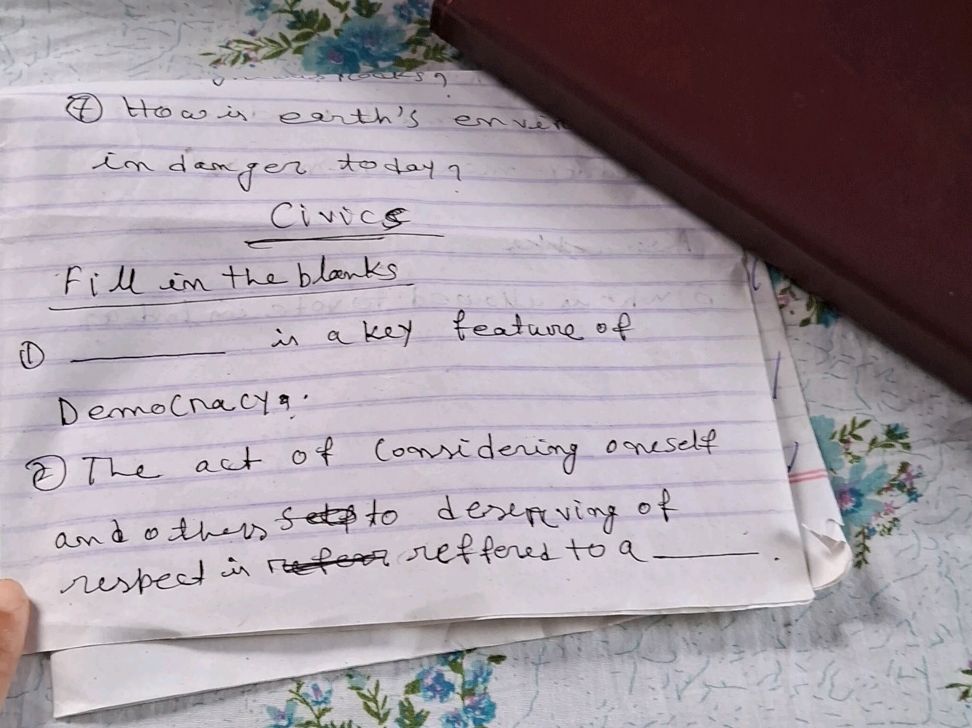 ⑦ How is earth's envir
in danger today?
Civics
Fill in the blanks
① ________ is a key feature of
Democracy.
② The act of Considering oneself
and others to deserving of
respect is reffered to a ______.